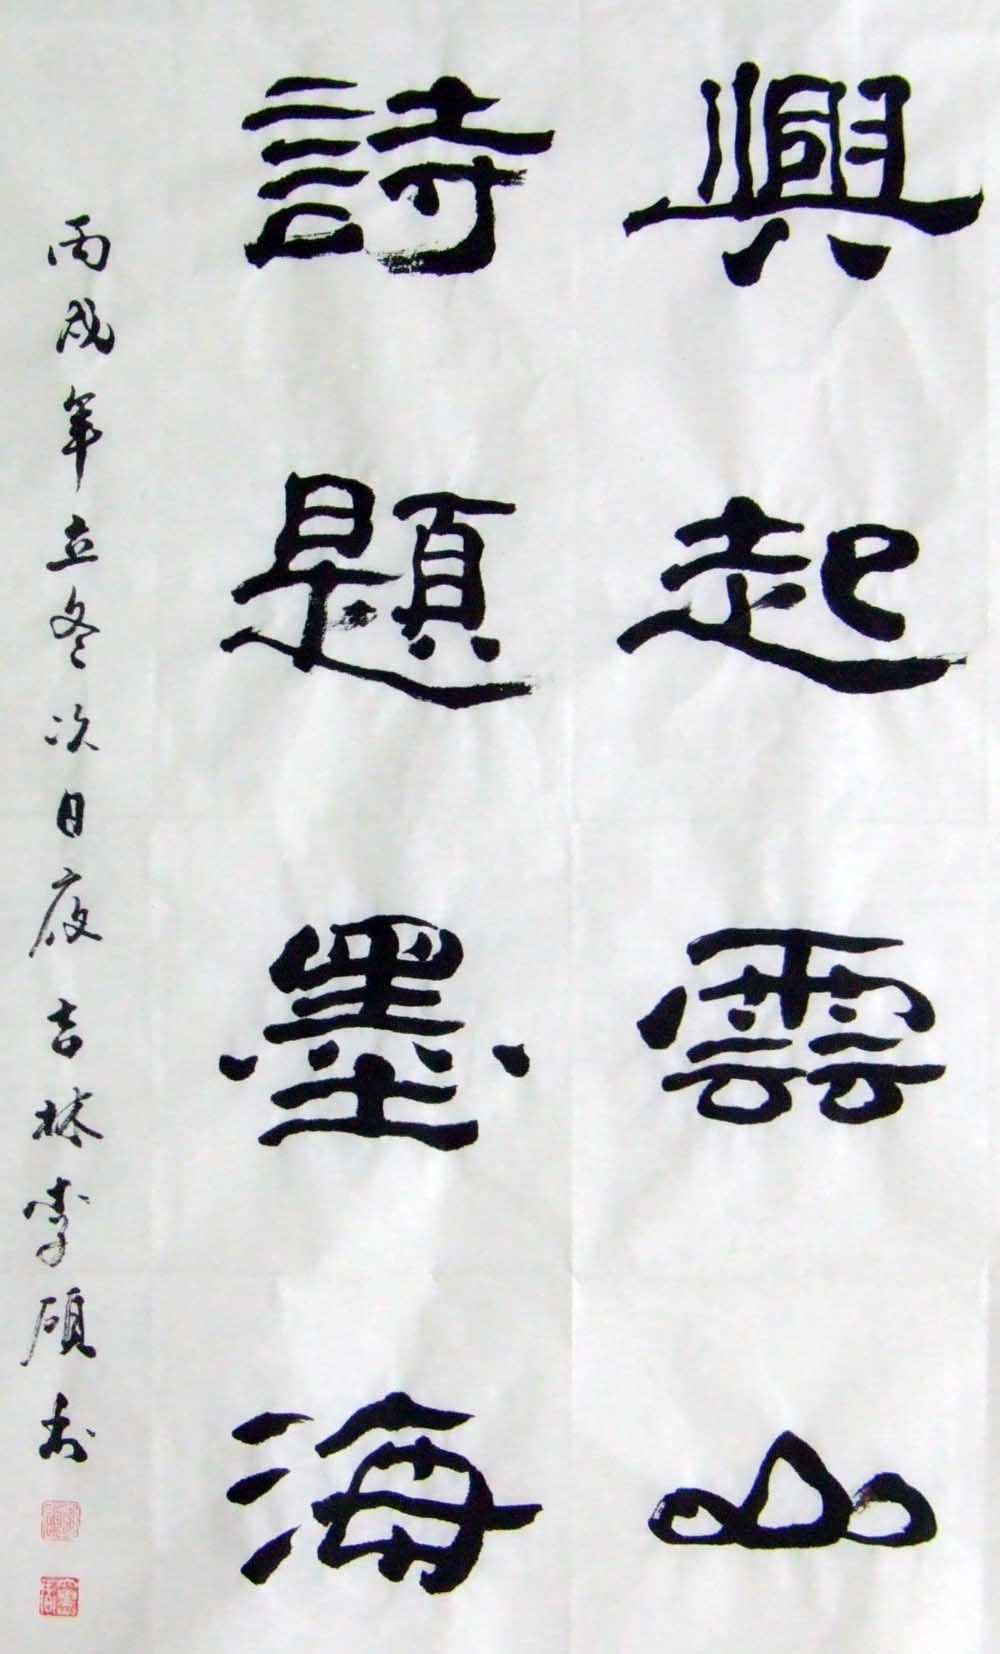 興起雲山
詩題墨海
丙戌年立冬次日夜吉林李碩書